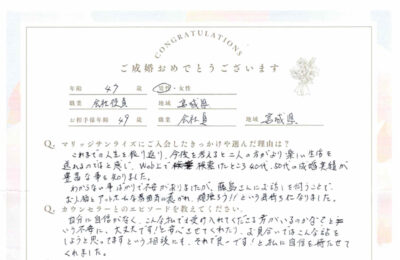 CONGRATULATIONS
ご成婚おめでとうございます
年齢 47 歳 男性・女性
職業 会社役員 地域 宮城県
お相手様年齢 49 歳 職業 会社員 宮城県
Q. マリッジサンライズにご入会したきっかけや選んだ理由は？
これまでの人生を振り返り、今後を考えると二人の方がより楽しい生活を
送れるのではと感じ、Web上で検索したところ40代、50代の成婚実績が
豊富な事を知りました。
わからない事ばかりで不安がありましたが、藤島さんにお話しを伺うことで、
頑張ろう!!という気持ちになりました。
Q. カウンセラーとのエピソードを教えてください。
自分に自信がなく、こんな私でも受け入れてくださる方がいるのか
という不安に、大丈夫です!と言いきってくれたり、お見合いではこんな話を
しようと思ってますという相談にも、それで良いです!と私に自信を持たせて
くれました。